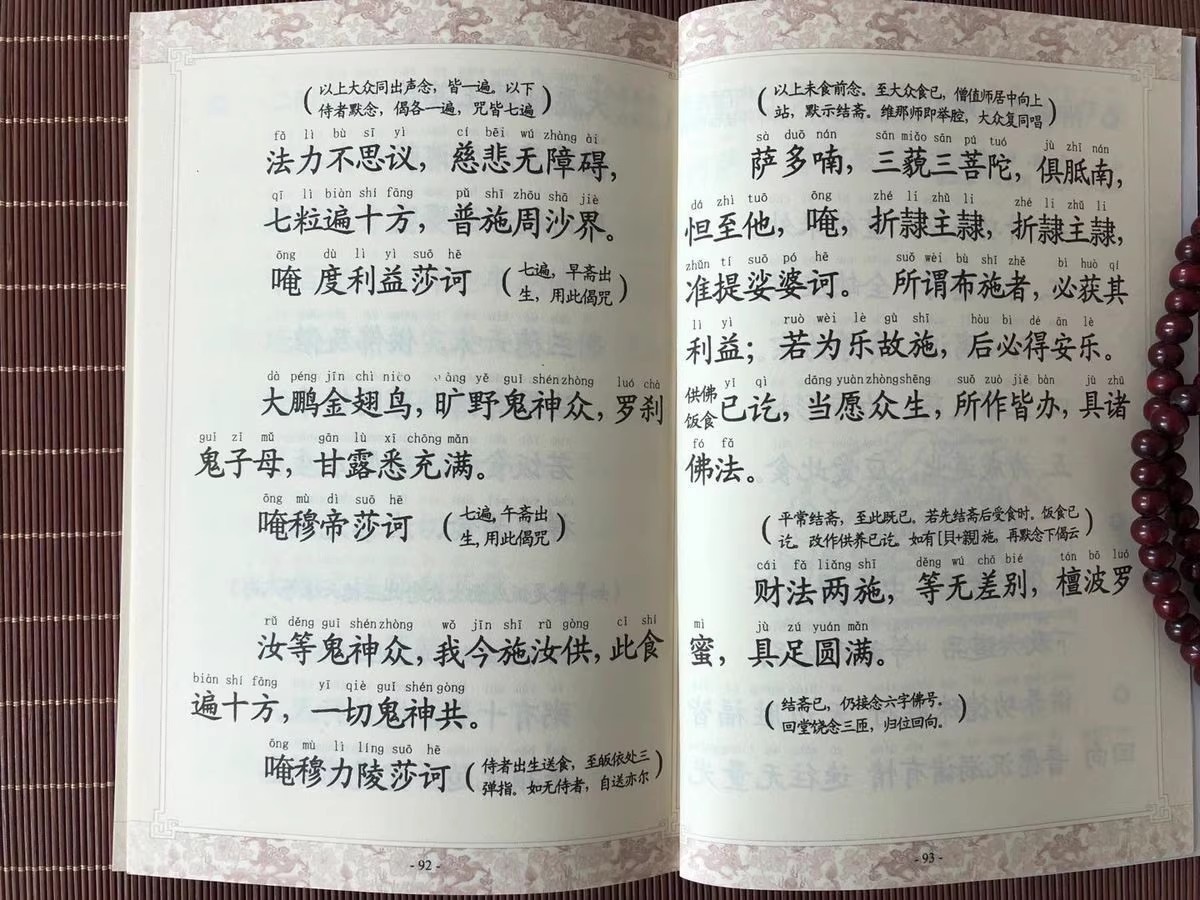 （以上大众同出声念，皆一遍。以下
侍者默念，偈各一遍，咒皆七遍）
fǎ lì bù sī yì cí bēi wú zhàng ài
法力不思议，慈悲无障碍，
qī lì biàn shí fāng pǔ shī zhōu shā jiè
七粒遍十方，普施周沙界。
ōng dù lì yì suō hē
唵 度利益莎诃（七遍，早斋出
生，用此偈咒）
dà péng jīn chì niǎo kuàng yě guǐ shén zhòng luó chà
大鹏金翅鸟，旷野鬼神众，罗刹
guǐ zǐ mǔ gān lù xī chōng mǎn
鬼子母，甘露悉充满。
ōng mù dì suō hē
唵穆帝莎诃（七遍，午斋出
生，用此偈咒）
rǔ děng guǐ shén zhòng wǒ jīn shī rǔ gòng cǐ shí
汝等鬼神众，我今施汝供，此食
biàn shí fāng yī qiè guǐ shén gòng
遍十方，一切鬼神共。
ōng mù lì líng suō hē
唵穆力陵莎诃（侍者出生送食，至皈依处三
弹指。如无侍者，自送亦尔）
- 92 -
（以上未食前念。至大众食已，僧值师居中向上
站，默示结斋。维那师即举腔，大众复同唱）
sà duō nán sān miǎo sān pú tuó jù zhī nán
萨多喃，三藐三菩陀，俱胝南，
dá zhì tuō ōng zhé lì zhǔ lì zhé lì zhǔ lì
怛至他，唵，折隷主隷，折隷主隷，
zhǔn tí suō pó hē suǒ wèi bù shī zhě bì huò qí
准提娑婆诃。所谓布施者，必获其
lì yì ruò wèi lè gù shī hòu bì dé ān lè
利益；若为乐故施，后必得安乐。
yǐ qì dāng yuàn zhòng shēng suǒ zuò jiē bàn jù zhū
供佛
饭食已讫，当愿众生，所作皆办，具诸
fó fǎ
佛法。
（平常结斋，至此既已。若先结斋后受食时。饭食已
讫。改作供养已讫。如有[貝+親]施，再默念下偈云）
cái fǎ liǎng shī děng wú chā bié tán bō luó
财法两施，等无差别，檀波罗
mì jù zú yuán mǎn
蜜，具足圆满。
（结斋已，仍接念六字佛号。
回堂饶念三匝，归位回向。）
- 93 -